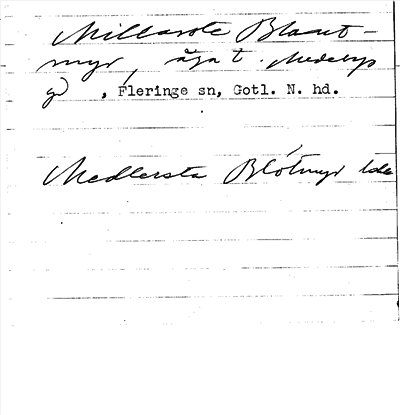 Millarste Blaut-
myr, äga t. Medebys
gd, Fleringe sn, Gotl. N. hd.
Medlersta Blötmyr